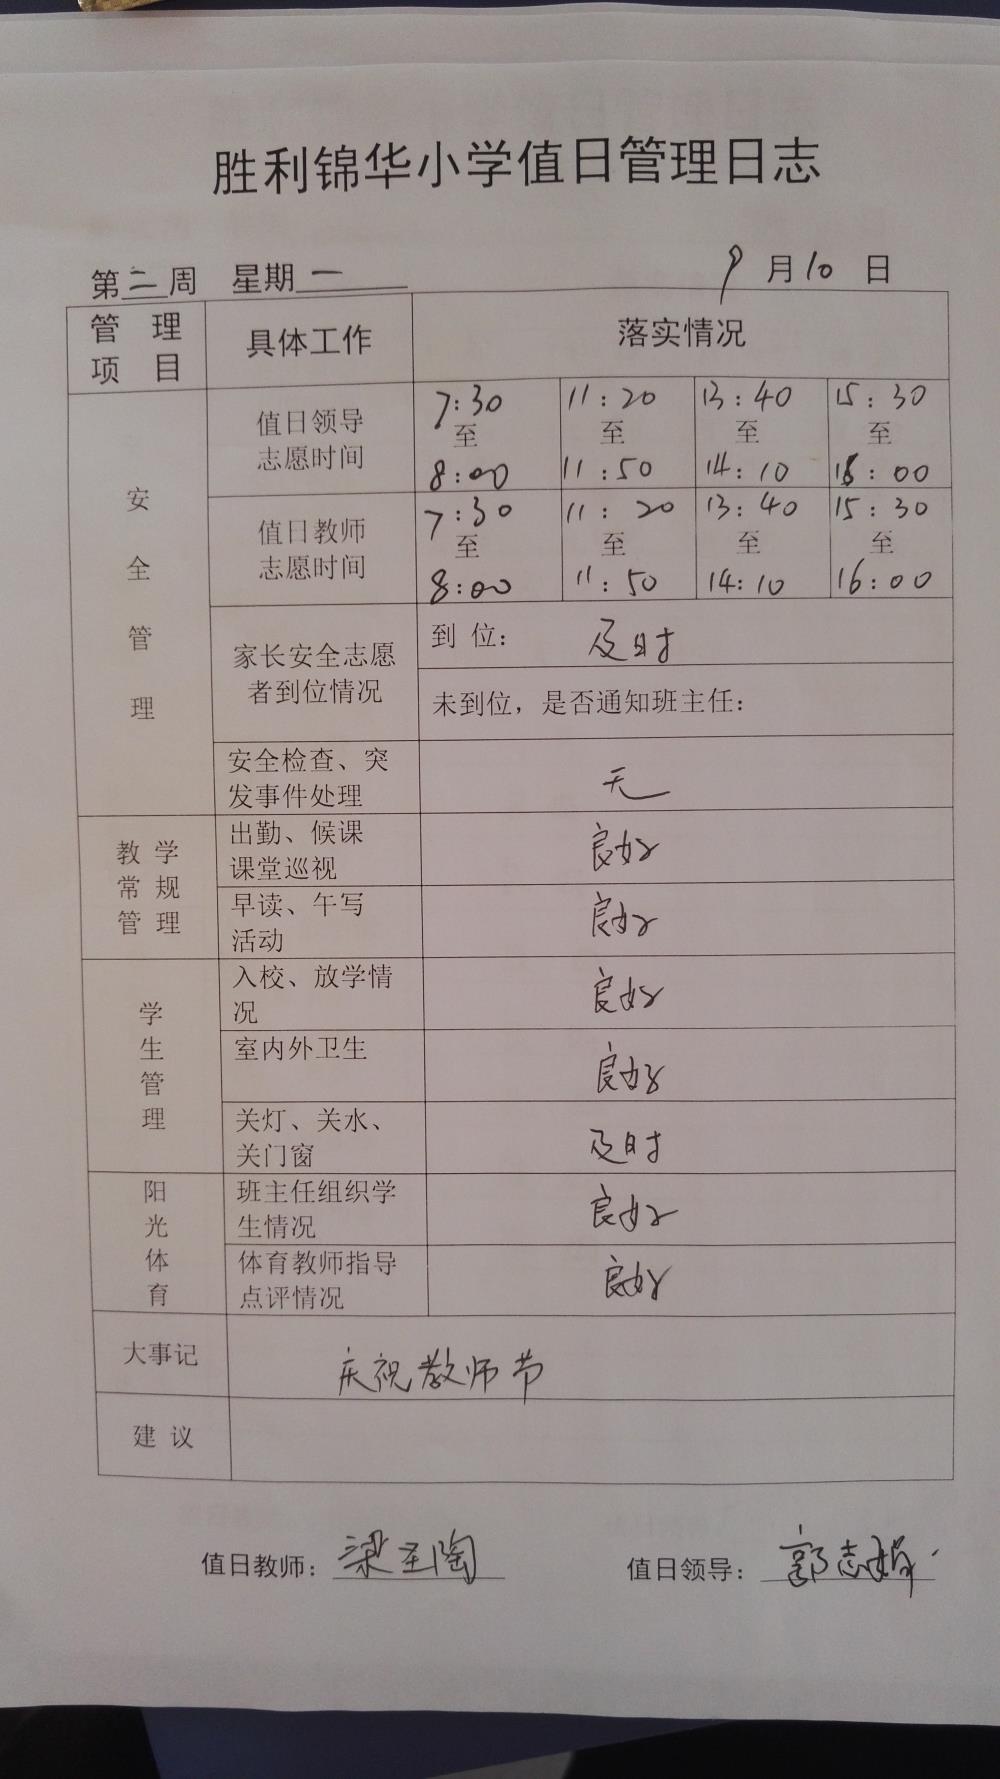 胜利锦华小学值日管理日志
第二周 星期一 9月10日
管理项目 具体工作 落实情况
安全管理
值日领导志愿时间 7:30至8:00 11:20至11:50 13:40至14:10 15:30至16:00
值日教师志愿时间 7:30至8:00 11:20至11:50 13:40至14:10 15:30至16:00
家长安全志愿者到位情况
到 位: 及时
未到位，是否通知班主任:
安全检查、突发事件处理 无
教学常规管理
出勤、候课课堂巡视 良好
早读、午写活动 良好
学生管理
入校、放学情况 良好
室内外卫生 良好
关灯、关水、关门窗 及时
阳光体育
班主任组织学生情况 良好
体育教师指导点评情况 良好
大事记 庆祝教师节
建 议
值日教师: 梁圣陶 值日领导: 郭志